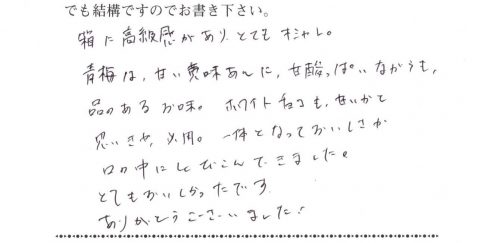 でも結構ですのでお書き下さい。
箱に高級感があり、とてもオシャレ。
青梅は、甘い黄味あんに、甘酸っぱいながらも、
品のあるお味。ホワイトチョコも、甘いかと
思いきや、必用。一体となっておいしさが
口の中にとびこんできました。
とてもおいしかったです
ありがとうございました!